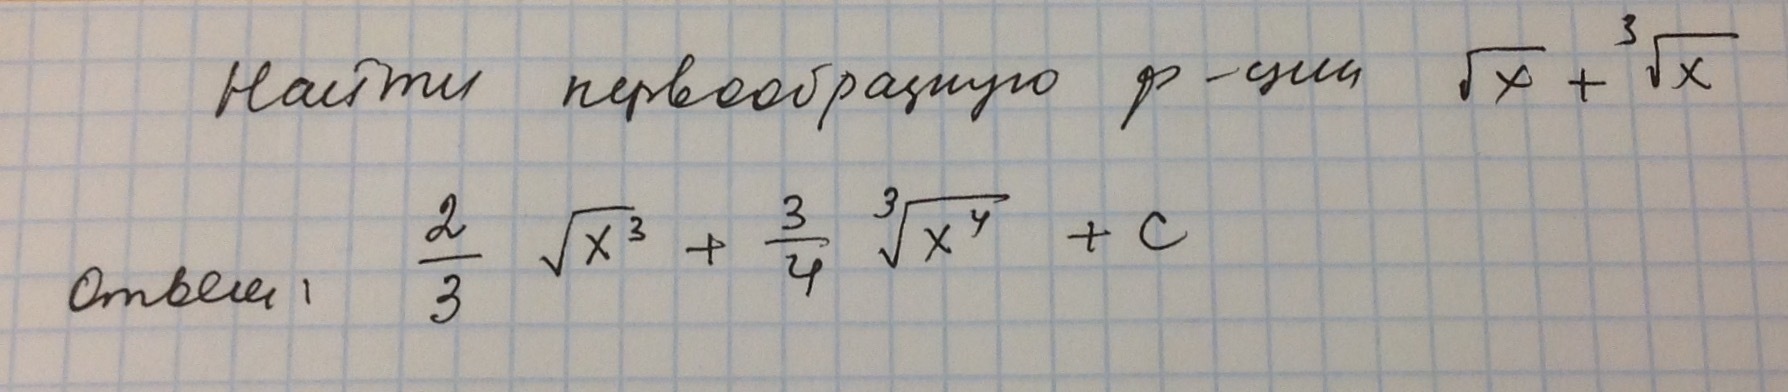 Найти первообразную ф-ции √x + ³√x
Ответ: 2/3 √x³ + 3/4 ³√x⁴ + C